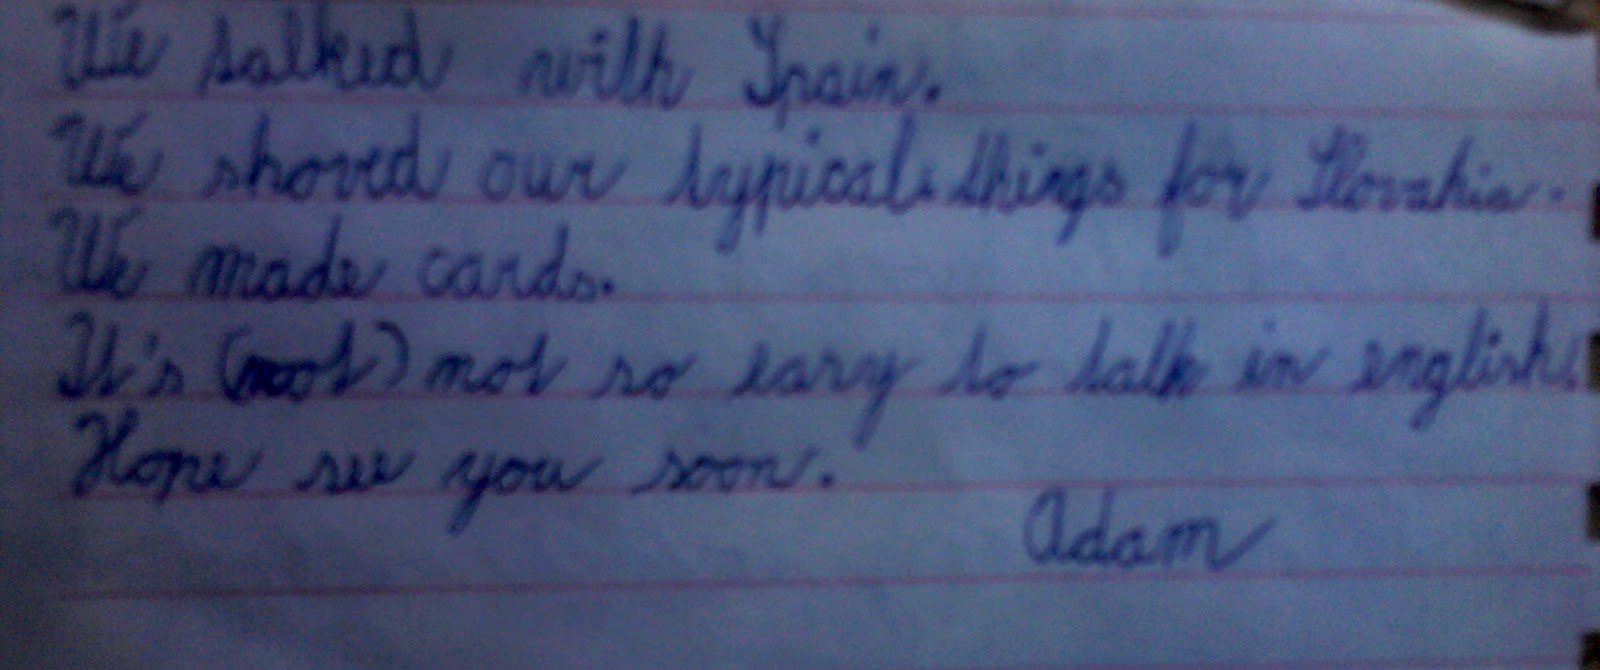 We talked with Spain.
We shoved our typical things for Slovakia.
We made cards.
It's (noot) not so easy to talk in english!
Hope see you soon.
Adam